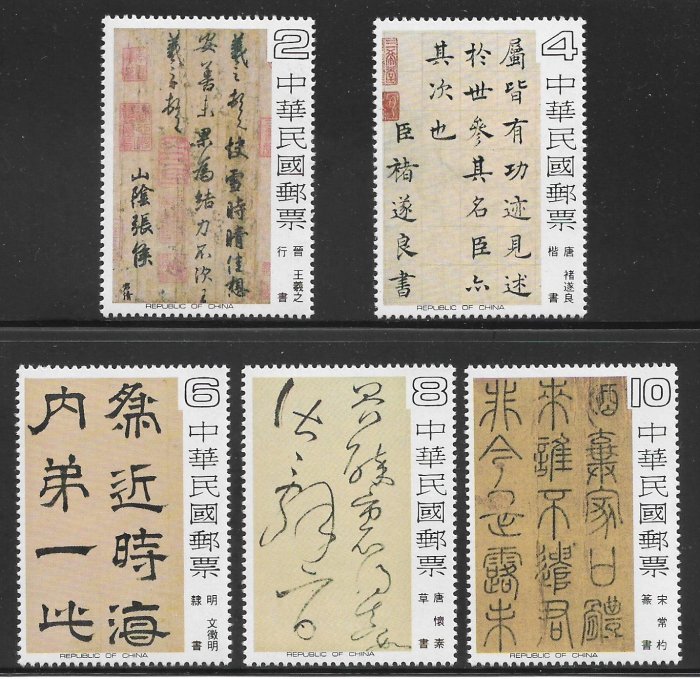 2
中華民國郵票
晉 王羲之
行書
羲之頓首快雪時晴佳想
安善未果為結力不次王
羲之頓首
山陰張侯
REPUBLIC OF CHINA
4
中華民國郵票
唐 褚遂良
楷書
屬皆有功迹見述
於世參其名臣亦
其次也
臣褚遂良書
REPUBLIC OF CHINA
6
中華民國郵票
明 文徵明
隸書
近時海
內弟一此
REPUBLIC OF CHINA
8
中華民國郵票
唐 懷素
草書
REPUBLIC OF CHINA
10
中華民國郵票
宋 常杓
篆書
酒家口
來誰不遣君
非今是露未
REPUBLIC OF CHINA